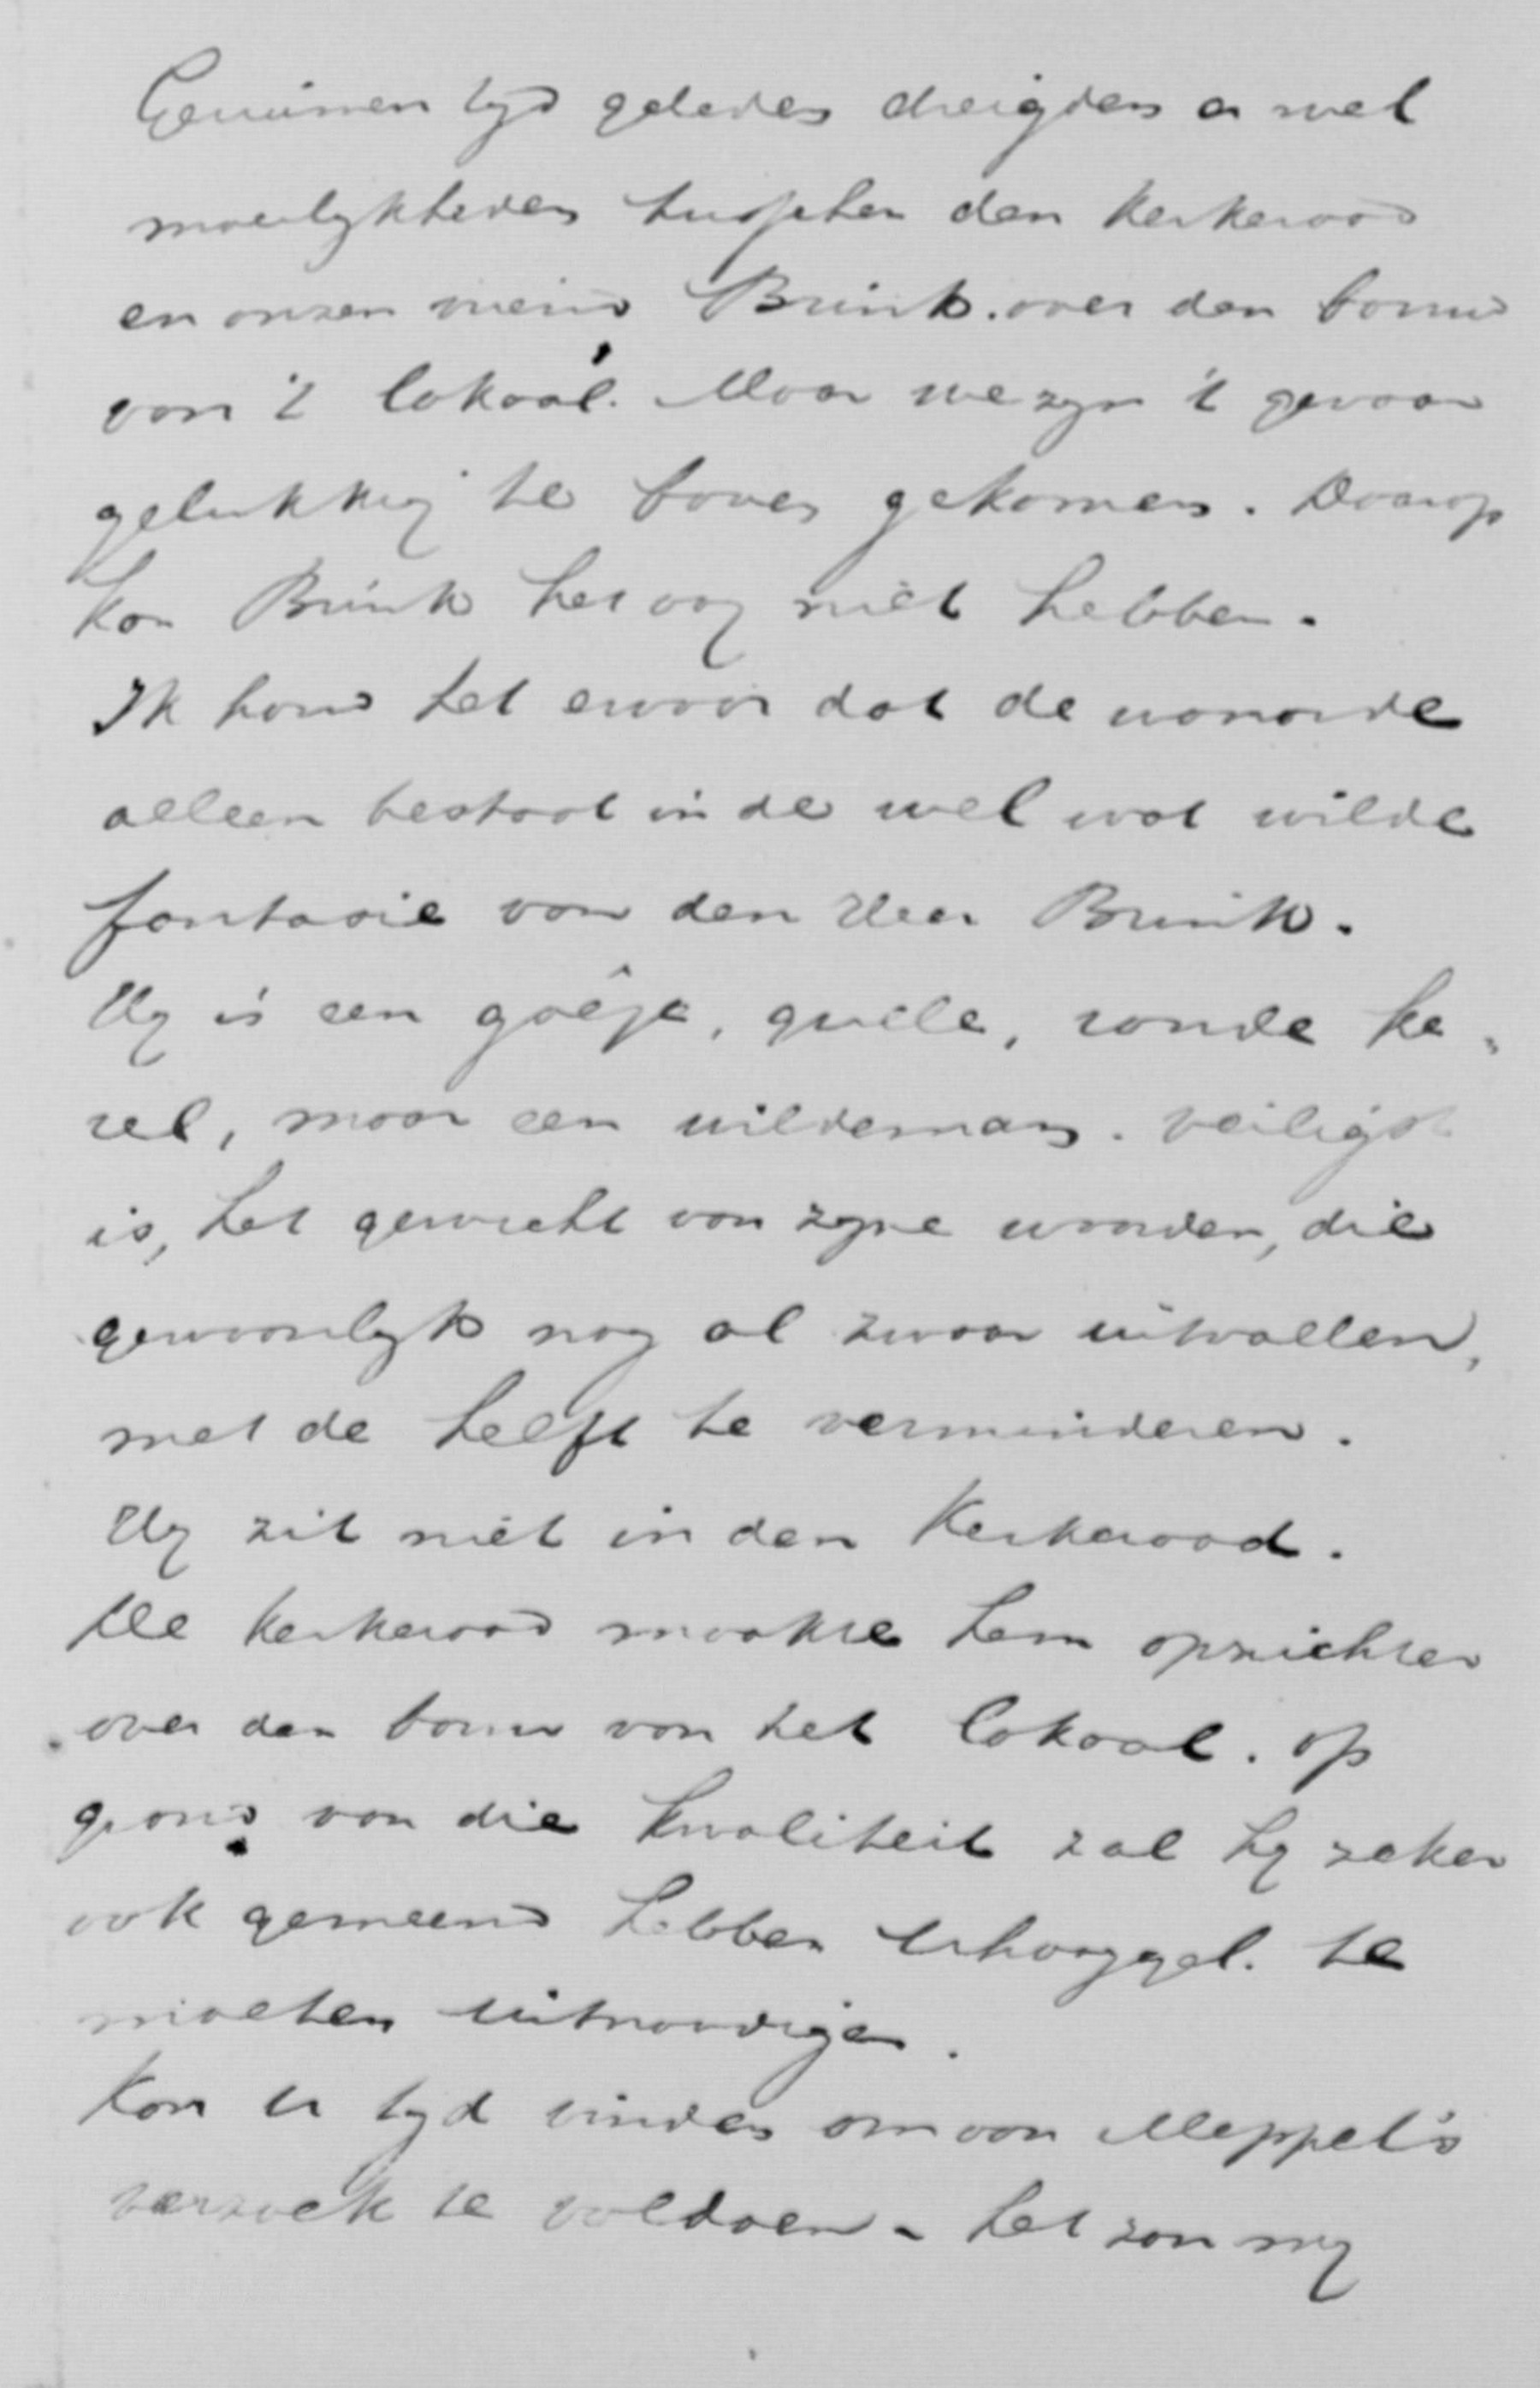 Geruimen tyd geleden dreigden er wel
moeilykheden tusschen den kerkeraad
en onzen vriend Brink. over den bouw
van 't lokaal. Maar we zyn 't gevaar
gelukkig te boven gekomen. Daarop
kan Brink het oog niet hebben.
Ik houd het ervoor dat de wanorde
alleen bestaat in de wel wat wilde
fantasie van den Heer Brink.
Hy is een goêje, gulle, ronde ke-
rel, maar een wildeman. Veiligst
is, het gewicht van zyne woorden, die
gewoonlyk nog al zwaar uitvallen,
met de helft te verminderen.
Hy zit niet in den Kerkeraad.
De kerkeraad maakte hem opzichter
over den bouw van het lokaal. Op
grond van die kwaliteit zal hy zeker
ook gemeend hebben Uhooggel. te
moeten uitnoodigen.
Kon U tyd vinden om aan Meppel's
verzoek te voldoen - het zou my